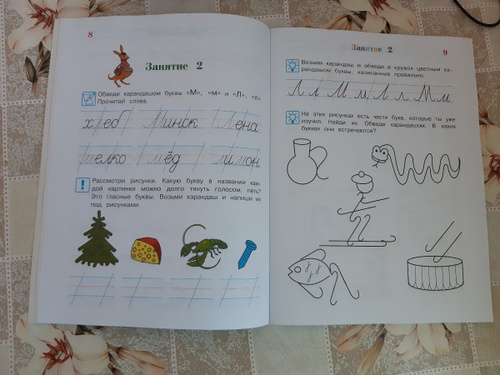 8
Занятие 2
Обведи карандашом буквы «М», «м» и «Л», «л».
Прочитай слова.
хлеб Минск Лена
мелко мёд лимон
! Рассмотри рисунки. Какую букву в названии каж-
дой картинки можно долго тянуть голосом, петь?
Это гласные буквы. Возьми карандаш и напиши их
под рисунками.
Занятие 2
9
Возьми карандаш и обведи в кружок цветным ка-
рандашом буквы, написанные правильно.
На этих рисунках есть части букв, которые ты уже
изучил. Найди их. Обведи карандашом. В каких
буквах они встречаются?